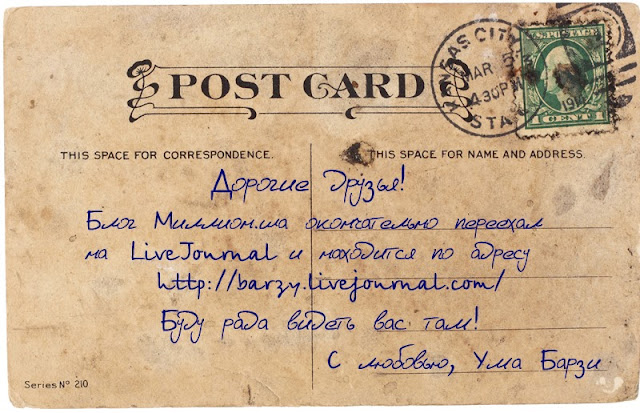 POST CARD
KANSAS CITY
MAR 5
4-30PM
STA
U.S. POSTAGE
1 CENT 1
THIS SPACE FOR CORRESPONDENCE.
THIS SPACE FOR NAME AND ADDRESS.
Дорогие друзья!
Блог Миллион.ша окончательно переехал
на LiveJournal и находится по адресу
http://barzy.livejournal.com/
Буду рада видеть вас там!
С любовью, Ума Барзи
Series Nº 210